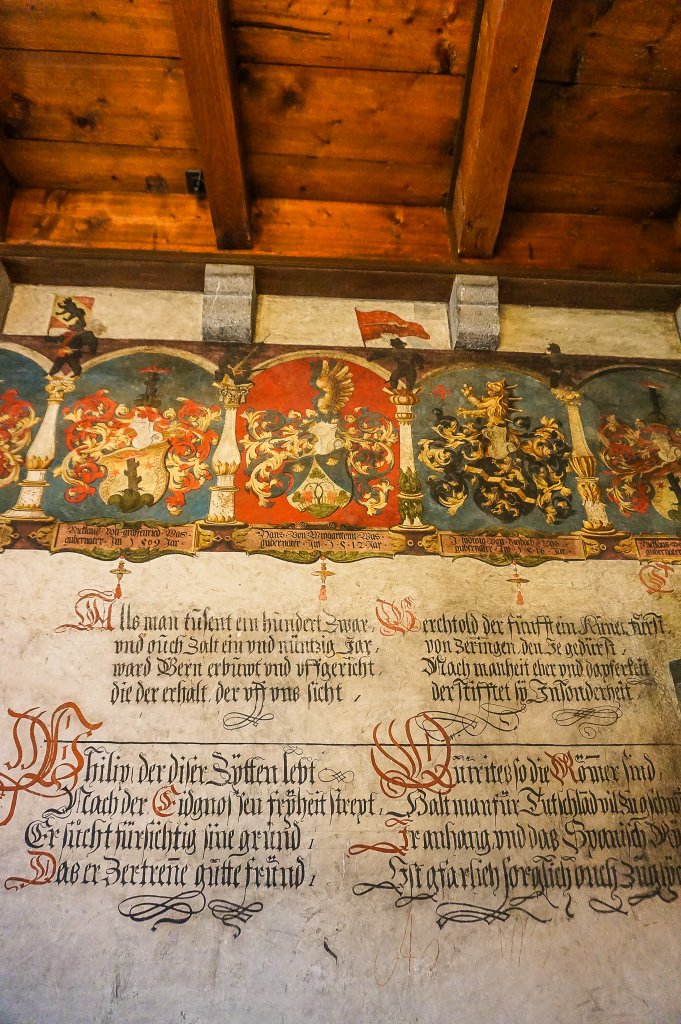 Hans Von Wingarttenn Was
gubernater Im 1 5 1 2 Jar
gubernater Im 1 5 1 6 Jar
Alls man tusent ein hundert Zwar,
vnd ouch Zalt ein vnd nüntzig Jar
ward Bern erbuwt vnd vffgericht
die der erhalt, der vff vns sicht,
Berchtold der fünfft ein
von Zeringen den Je gedürst
Nach manheit eher vnd dapferkeit
der stifftet sÿ Jnsonderheit
Philip, der diser Zÿtten lebt
Nach der Eidgnossen frÿheit strept,
Er sücht fürsichtig sine gründ,
Das er Zertrene gütte fründ,
so die Römer sind,
Halt man für
Ir anhang vnd das Spanisch
Ist gfarlich sorglich ouch